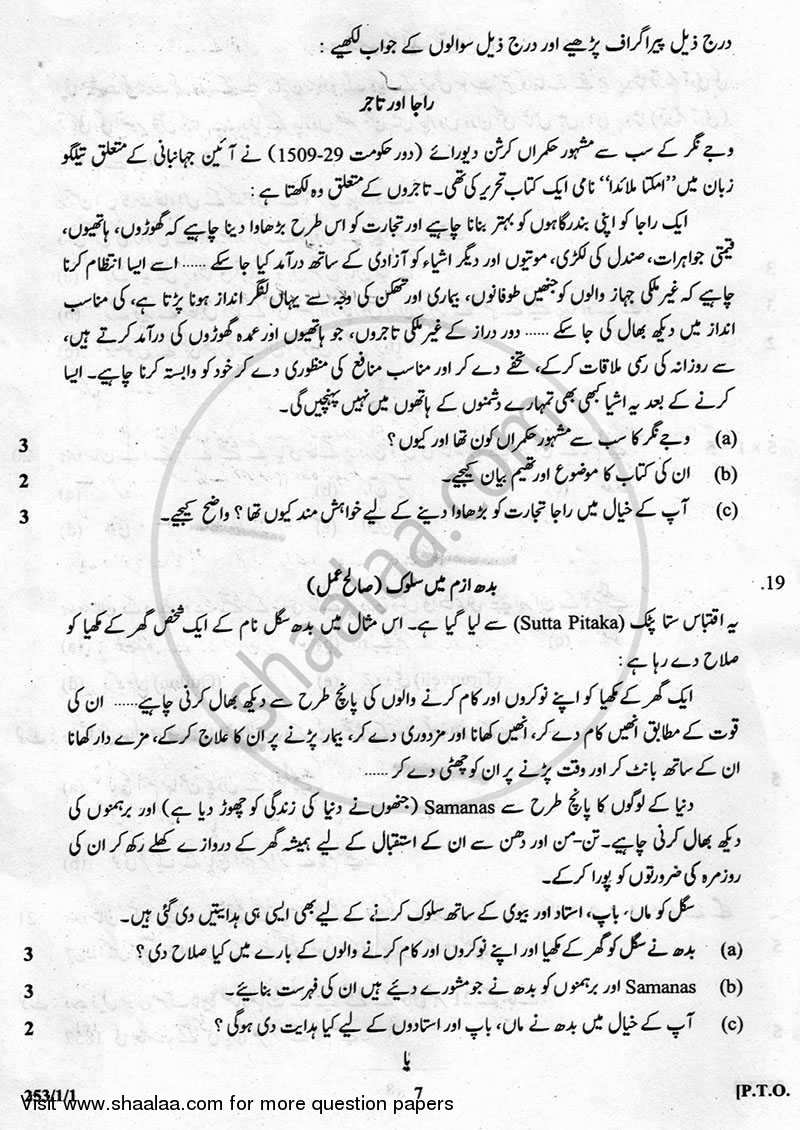 درج ذیل پیراگراف پڑھیے اور درج ذیل سوالوں کے جواب لکھیے :
راجا اور تاجر
وجے نگر کے سب سے مشہور حکمراں کرشن دیورائے (دور حکومت 29-1509) نے آئین جہانبانی کے متعلق تیلگو
زبان میں ”امکتا مالیادا“ نامی ایک کتاب تحریر کی تھی۔ تاجروں کے متعلق وہ لکھتا ہے :
ایک راجا کو اپنی بندرگاہوں کو بہتر بنانا چاہیے اور تجارت کو اس طرح بڑھاوا دینا چاہیے کہ گھوڑوں، ہاتھیوں،
قیمتی جواہرات، صندل کی لکڑی، موتیوں اور دیگر اشیاء کو آزادی کے ساتھ درآمد کیا جا سکے ...... اسے ایسا انتظام کرنا
چاہیے کہ غیر ملکی جہاز والوں کو جنھیں طوفانوں، بیماری اور تھکن کی وجہ سے یہاں لنگر انداز ہونا پڑتا ہے، کی مناسب
انداز میں دیکھ بھال کی جا سکے ...... دور دراز کے غیر ملکی تاجروں، جو ہاتھیوں اور عمدہ گھوڑوں کی درآمد کرتے ہیں،
سے روزانہ کی رسمی ملاقات کرکے، تحفے دے کر اور مناسب منافع کی منظوری دے کر خود کو وابستہ کرنا چاہیے۔ ایسا
کرنے کے بعد یہ اشیا کبھی بھی تمہارے دشمنوں کے ہاتھوں میں نہیں پہنچیں گی۔
(a) وجے نگر کا سب سے مشہور حکمراں کون تھا اور کیوں ؟ 3
(b) ان کی کتاب کا موضوع اور تھیم بیان کیجیے۔ 2
(c) آپ کے خیال میں راجا تجارت کو بڑھاوا دینے کے لیے خواہش مند کیوں تھا ؟ واضح کیجیے۔ 3
19. بدھ ازم میں سلوک (صالح عمل)
یہ اقتباس ستا پٹک (Sutta Pitaka) سے لیا گیا ہے۔ اس مثال میں بدھ سگل نام کے ایک شخص گھر کے مکھیا کو
صلاح دے رہا ہے :
ایک گھر کے مکھیا کو اپنے نوکروں اور کام کرنے والوں کی پانچ طرح سے دیکھ بھال کرنی چاہیے...... ان کی
قوت کے مطابق انھیں کام دے کر، انھیں کھانا اور مزدوری دے کر، بیمار پڑنے پر ان کا علاج کرکے، مزے دار کھانا
ان کے ساتھ بانٹ کر اور وقت پڑنے پر ان کو چھٹی دے کر ......
دنیا کے لوگوں کا پانچ طرح سے Samanas (جنھوں نے دنیا کی زندگی کو چھوڑ دیا ہے) اور برہمنوں کی
دیکھ بھال کرنی چاہیے۔ تن-من اور دھن سے ان کے استقبال کے لیے ہمیشہ گھر کے دروازے کھلے رکھ کر ان کی
روزمرہ کی ضرورتوں کو پورا کرکے۔
سگل کو ماں، باپ، استاد اور بیوی کے ساتھ سلوک کرنے کے لیے بھی ایسی ہی ہدایتیں دی گئی ہیں۔
(a) بدھ نے سگل کو گھر کے مکھیا اور اپنے نوکروں اور کام کرنے والوں کے بارے میں کیا صلاح دی ؟ 3
(b) Samanas اور برہمنوں کو بدھ نے جو مشورے دیئے ہیں ان کی فہرست بنائیے۔ 3
(c) آپ کے خیال میں بدھ نے ماں، باپ اور استادوں کے لیے کیا ہدایت دی ہوگی ؟ 2
یا
253/1/1 7 [P.T.O.
Visit www.shaalaa.com for more question papers
shaalaa.com